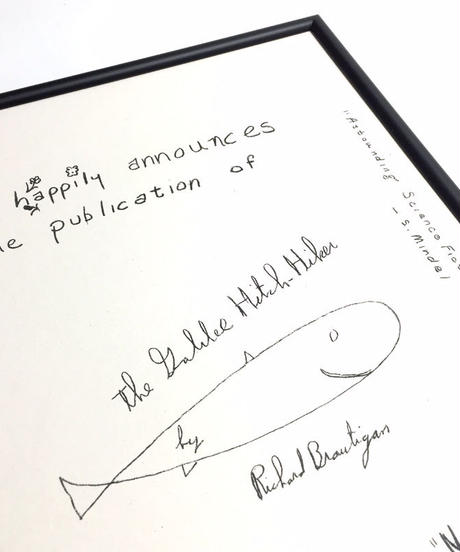 happily announces
publication of
"Astounding Science Fict
- S. Mindel
The Galilee Hitch-Hiker
by
Richard Brautigan
"N